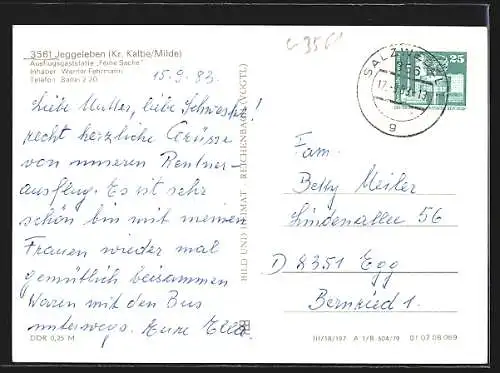 3561 Jeggeleben (Kr. Kalbe/Milde)
Ausflugsgaststätte „Feine Sache"
Inhaber: Werner Fehrmann
Telefon: Badin 2 20
15.9.83
Liebe Mutter, liebe Schwester!
recht herzliche Grüsse
von unserem Rentner-
ausflug. Es ist sehr
schön bin mit meinen
Frauen wieder mal
gemütlich beisammen
Waren mit den Bus
unterwegs. Eure Elli.
DDR 0,25 M
BILD UND HEIMAT REICHENBACH (VOGTL)
3561
SALZWEDEL
g
25
Fam.
Betty Meiler
Lindenallee 56
D 8351 Egg
Bernried 1.
III/18/197 A 1/B 604/79 01 07 08 069